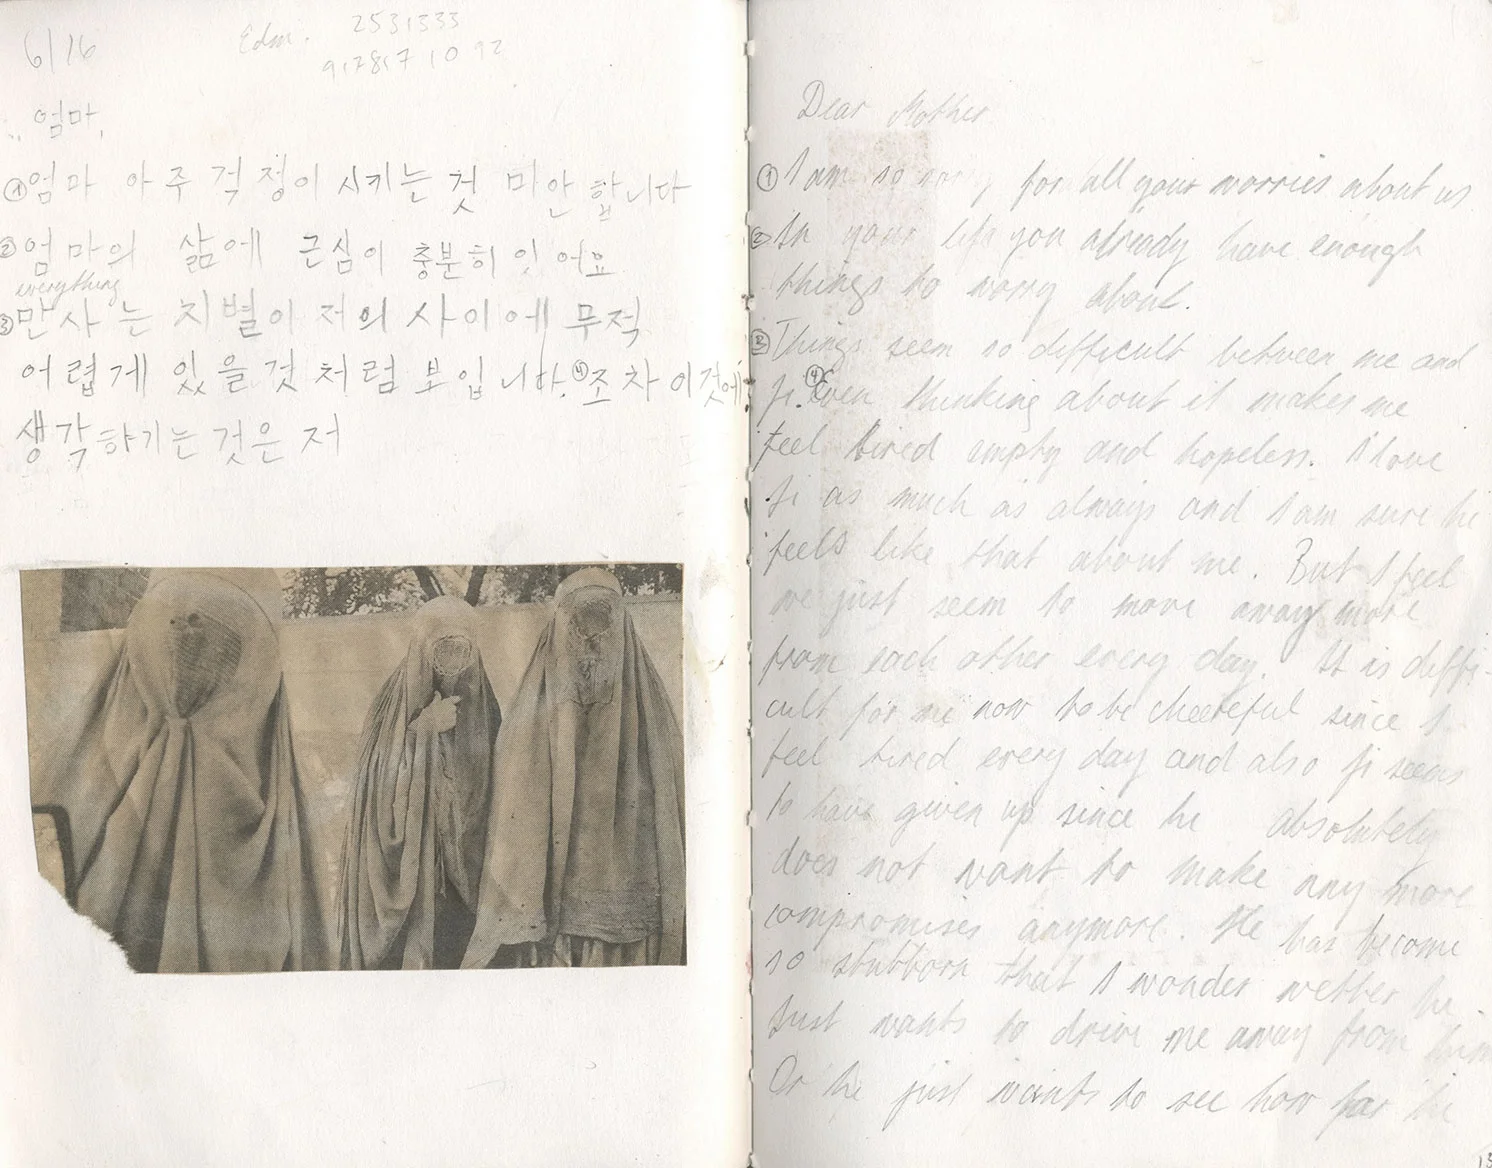 6/16
Edm. 2531333
917817 10 92
엄마,
① 엄마 아주 걱정이 시키는 것 미안 합니다
② 엄마의 삶에 근심이 충분히 있어요
everything
③ 만사는 치별이 저의 사이에 무척
어렵게 있을것 처럼 보입니다. ④ 조차 이것에
생각하기는 것은 저
Dear Mother
① I am so sorry for all your worries about us
② In your life you already have enough
things to worry about.
③ Things seem so difficult between me and
④ Even thinking about it makes me
feel tired empty and hopeless. I love
as much as always and I am sure he
feels like that about me. But I feel
we just seem to move away more
from each other every day. It is diffi-
cult for me now to be cheereful since I
feel tired every day and also seems
to have given up since he absolutely
does not want to make any more
compromises anymore. He has become
so stubborn that I wonder wether he
just wants to drive me away from him
Or he just wants to see how far he